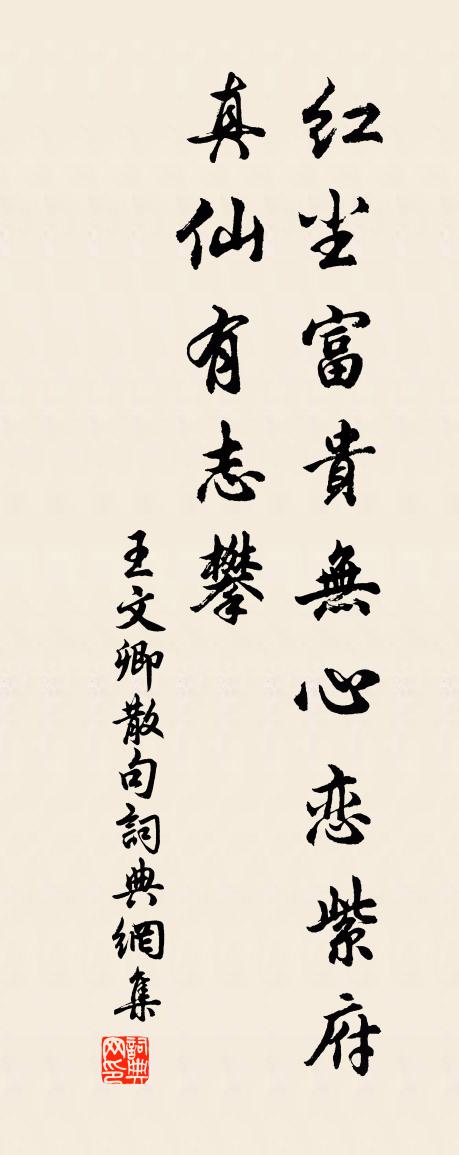 红尘富貴無心恋紫府
真仙有志攀
王文卿散句詞典網集
詞典网印